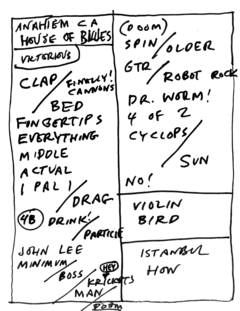 ANAHIEM CA
HOUSE OF BLUES
VICTORIOUS
CLAP / FINALLY!
CANNONS
BED
FINGERTIPS
EVERYTHING
MIDDLE
ACTUAL
1 PAL 1
DRAG
4B DRINK!
PARTICLE
JOHN LEE
MINIMUM
BOSS HEY
KRICKETS
MAN
POEM
(DOOM)
SPIN / OLDER
GTR / ROBOT ROCK
DR. WORM!
4 OF 2
CYCLOPS
SUN
NO!
VIOLIN
BIRD
ISTANBUL
HOW